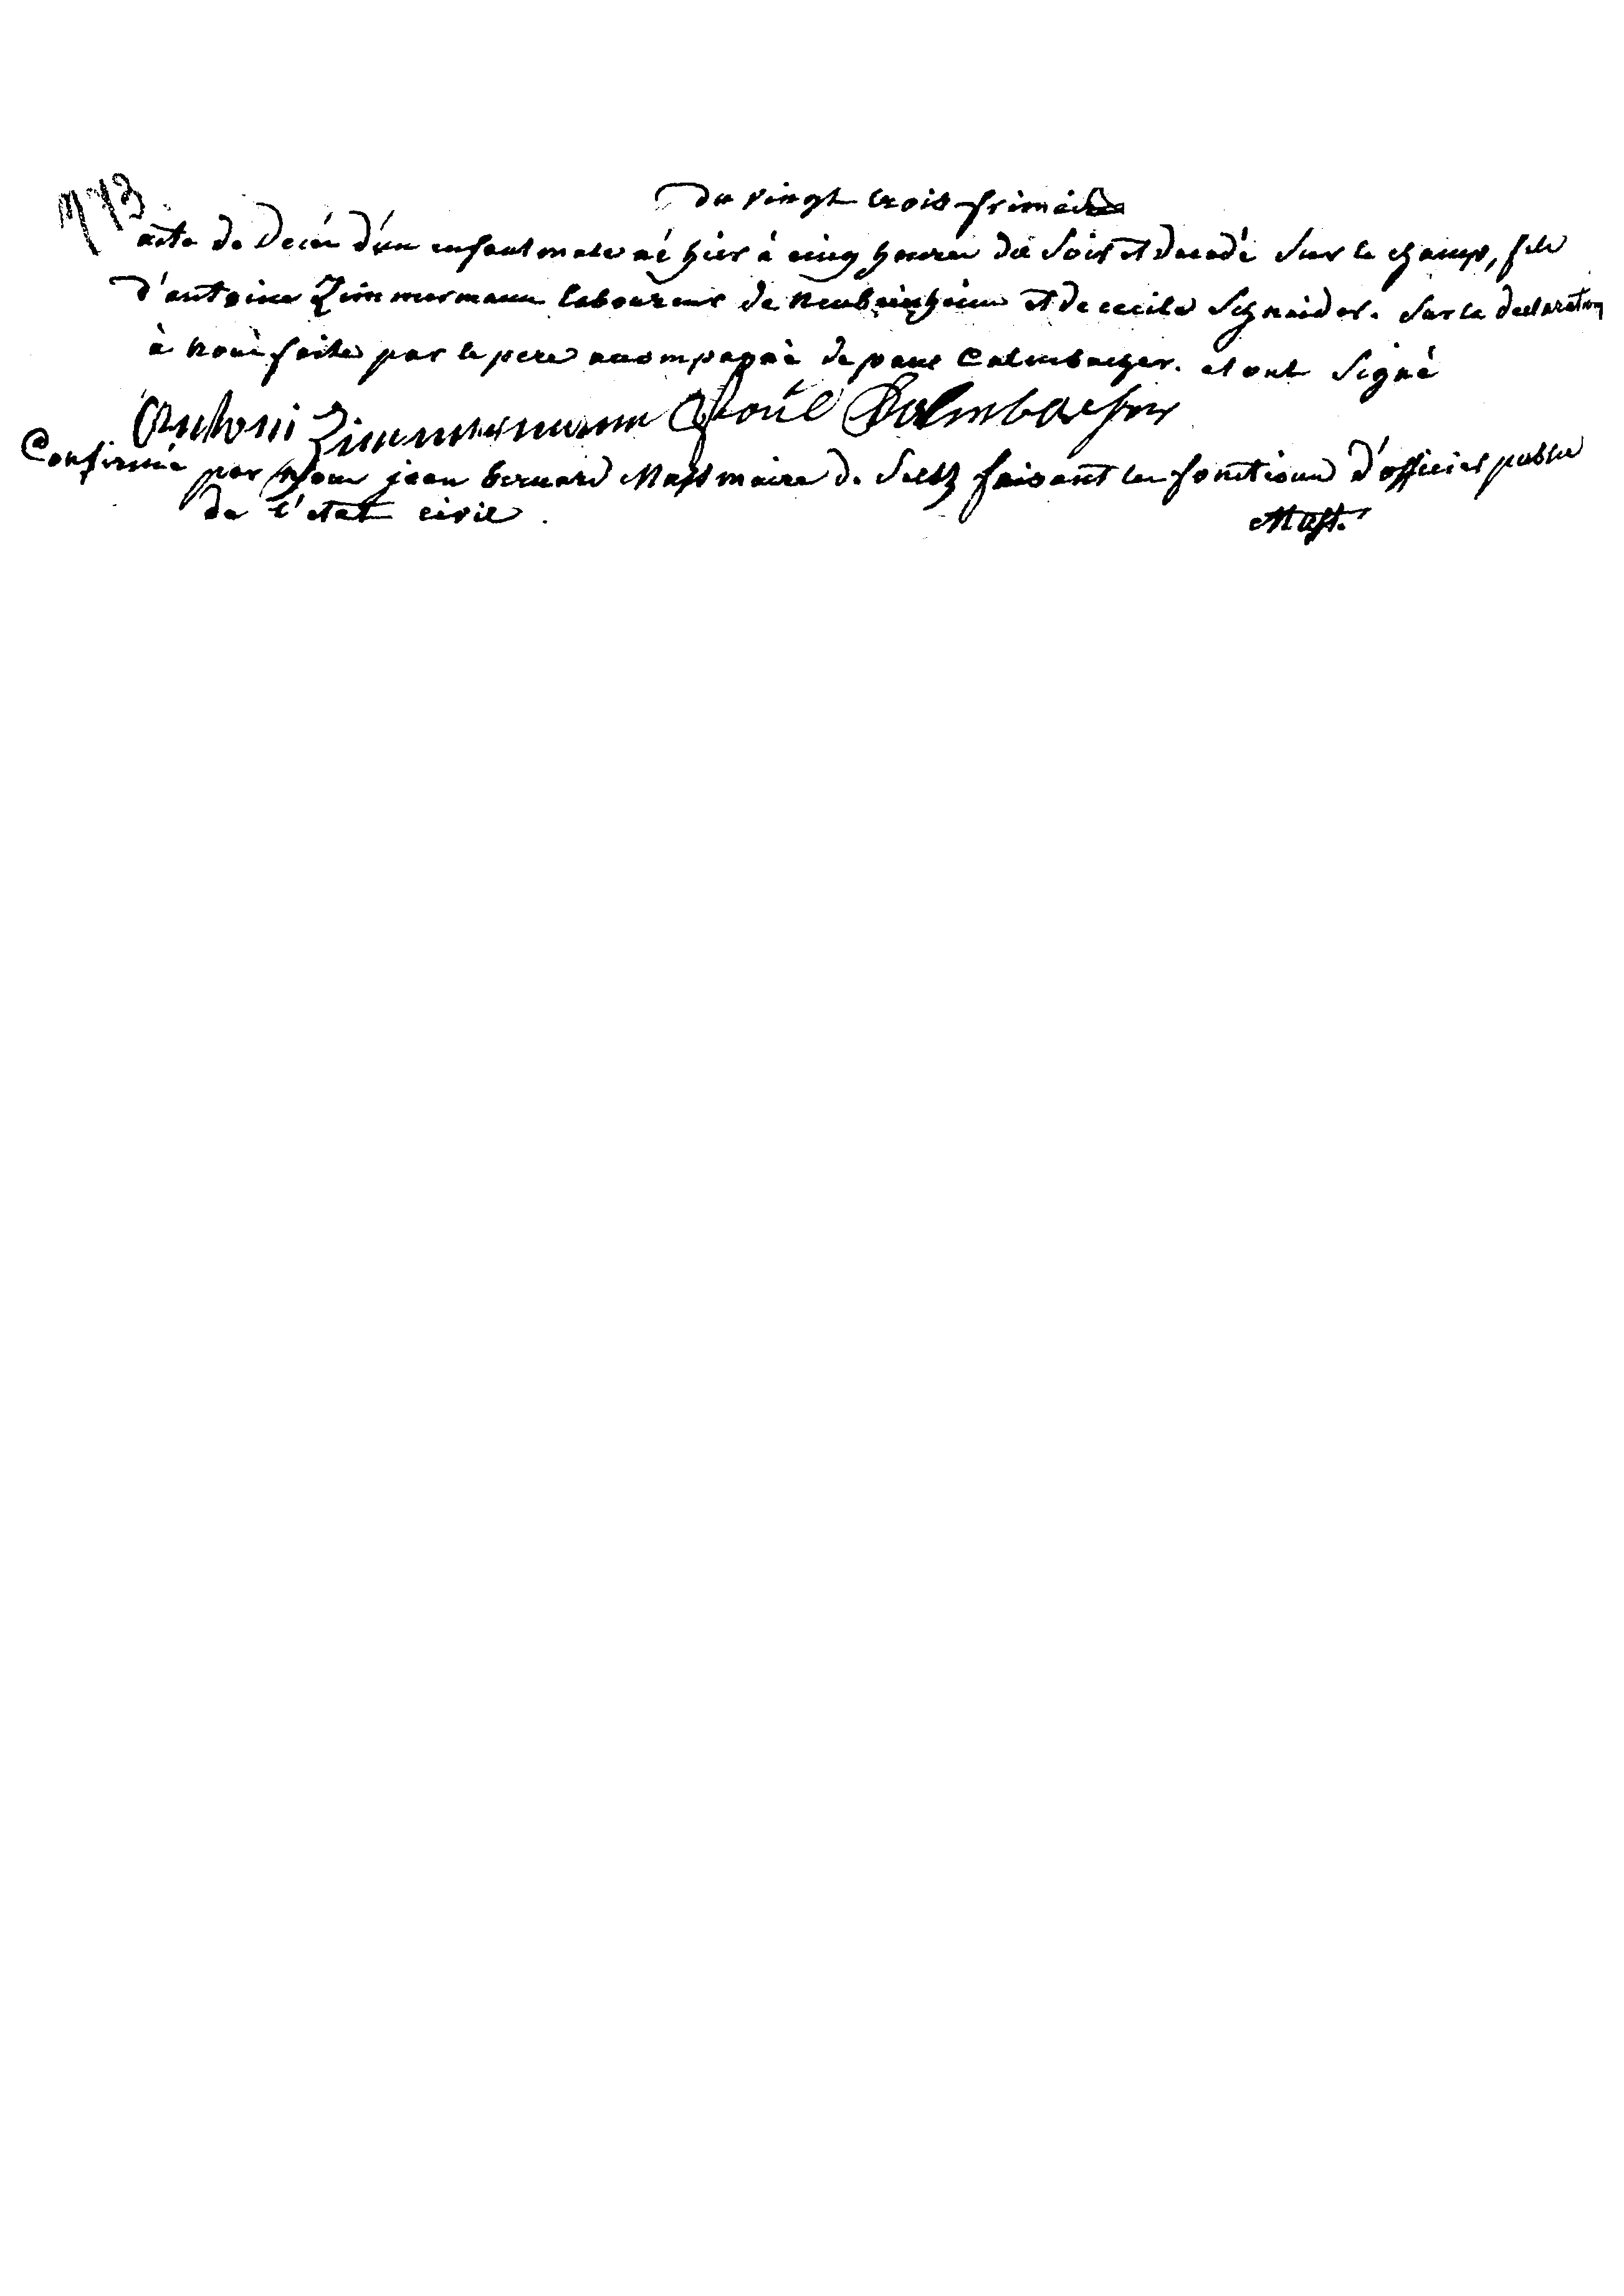 du vingt trois frimaire
acte de deces d'un enfant male né hier à cinq heures du soir et decedé sur le champ, fils
d'antoine Zimmermann laboureur de neubeinheim et de cecile Schneider. sur la declaration
à nous faite par le pere accompagné de paul Calmbacher. et ont signé
Anthoni Zimmermann Paul Calmbacher
Confirmé par nous jean bernard Mast maire de Seltz faisant les fonctions d'officier public
de l'etat civil.
Mast.